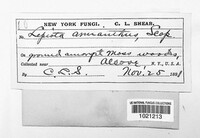 NEW YORK FUNGI. C. L. SHEAR.
No. Lepiota amianthus, Scop
On ground amongst moss woods,
Collected near Alcove N.Y., U.S.A.
By C.L.S. Nov. 25 189
US NATIONAL FUNGUS COLLECTIONS
1021213